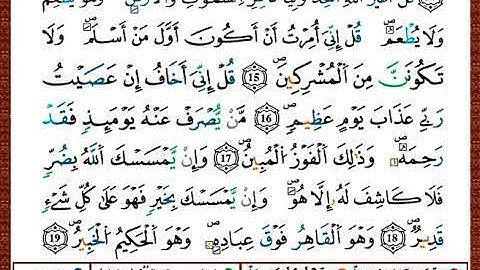 وَلَا يُطْعَمُ ۗ قُلْ إِنِّيَ أُمِرْتُ أَنْ أَكُونَ أَوَّلَ مَنْ أَسْلَمَ ۖ وَلَا
تَكُونَنَّ مِنَ الْمُشْرِكِينَ ۖ 15 قُلْ إِنِّيَ أَخَافُ إِنْ عَصَيْتُ
رَبِّي عَذَابَ يَوْمٍ عَظِيمٍ ۖ 16 مَّنْ يُّصْرَفْ عَنْهُ يَوْمَئِذٍ فَقَدْ
رَحِمَهُ ۖ وَذَٰلِكَ الْفَوْزُ الْمُبِينُ ۖ 17 وَإِنْ يَّمْسَسْكَ اللَّهُ بِضُرٍّ
فَلَا كَاشِفَ لَهُ إِلَّا هُوَ ۖ وَإِنْ يَّمْسَسْكَ بِخَيْرٍ فَهُوَ عَلَىٰ كُلِّ شَيْءٍ
قَدِيرٌ ۖ 18 وَهُوَ الْقَاهِرُ فَوْقَ عِبَادِهِ ۖ وَهُوَ الْحَكِيمُ الْخَبِيرُ ۖ 19